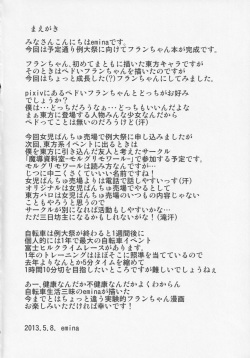 まえがき
みなさんこんにちはeminaです。
今回は予定通り例大祭に向けてフランちゃん本が完成です。
フランちゃん、初めてまともに描いた東方キャラですが
そのときはペドいフランちゃんを描いたのですが
今回はちょっと成長した(?)フランちゃんにしてみました。
pixivにあるペドいフランちゃんとどっちがお好み
でしょうか？
僕は…どっちだろうなぁ…どっちもいいんだよな
まぁ東方に登場する人物みんな少女なんだから
ペドってことは無いのだろうけど(汗)
今回女児ぱんちゅ売場で例大祭に申し込みましたが
次回、東方系イベントに出るときは
僕を東方に引き込んだ友人と考えたサークル
「魔導資料室-モルグリモワール-」で参加する予定です。
モルグリモワールは読み方なんですが…
じつに中二くさくていい名前ですね！
女児ぱんちゅ売場よりは電話で話しやすいっす(汗)
オリジナルは女児ぱんちゅ売場でやるとして
東方ペロは女児ぱんちゅ売場のいつもの内容じゃない
こともやろうと思うので
サークルが別になれば活動もしやすいかな…
ただ三日坊主になるかもしれないがな！(滝汗)
自転車は例大祭が終わると1週間後に
個人的には1年で最大の自転車イベント
富士ヒルクライムレースがあります。
1年のトレーニングはほぼそこに照準を当てているので
去年よりなんとか5分タイムを縮めて
1時間10分切を目指したいところですが難しいでしょうねぇ
あー、健康なんだか不健康だかよくわからん
自転車生活三昧のeminaが描いた
今までとはちょっと違う実験的フランちゃん漫画
お楽しみいただければ幸いです！
2013.5.8. emina